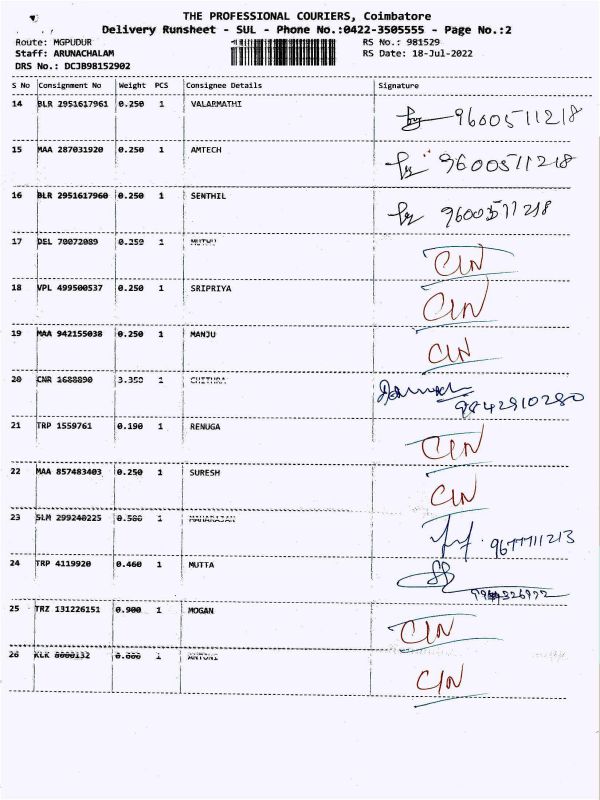 THE PROFESSIONAL COURIERS, Coimbatore
Delivery Runsheet - SUL - Phone No.:0422-3505555 - Page No.:2
Route: MGPUDUR RS No.: 981529
Staff: ARUNACHALAM RS Date: 18-Jul-2022
DRS No.: DCJB98152902
S No Consignment No Weight PCS Consignee Details Signature
14 BLR 2951617961 0.250 1 VALARMATHI 9600511218
15 MAA 287031920 0.250 1 AMTECH 9600511218
16 BLR 2951617960 0.250 1 SENTHIL 9600511218
17 DEL 70072089 0.250 1 MUTHU CIN
18 VPL 499500537 0.250 1 SRIPRIYA CIN
19 MAA 942155038 0.250 1 MANJU CIN
20 CNR 1688890 3.350 1 CHITHRA 9842910280
21 TRP 1559761 0.190 1 RENUGA CIN
22 MAA 857483403 0.250 1 SURESH CIN
23 SLM 299240225 0.580 1 MAHARAJAN 9677711213
24 TRP 4119920 0.460 1 MUTTA
25 TRZ 131226151 0.900 1 MOGAN CIN
26 KLK 1 ANTONI CIN